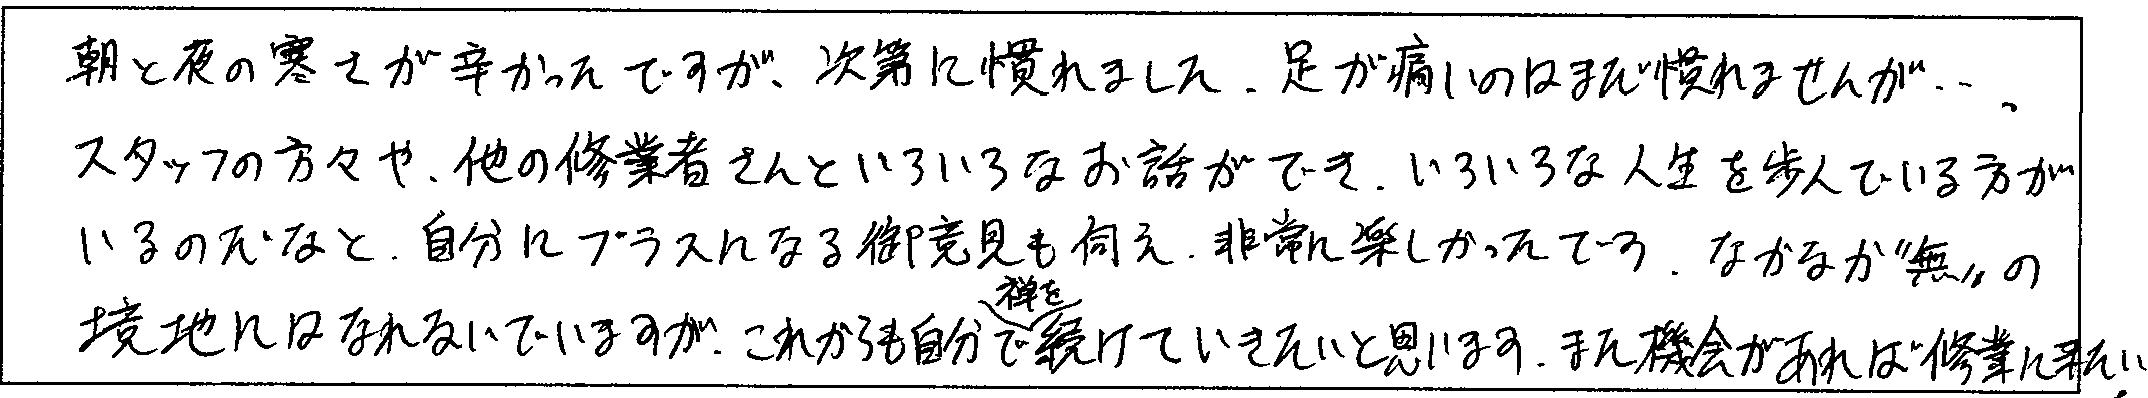 朝と夜の寒さが辛かったですが、次第に慣れました。足が痛いのはまだ慣れませんが‥、
スタッフの方々や、他の修業者さんといろいろなお話ができ、いろいろな人生を歩んでいる方が
いるのだなと、自分にプラスになる御意見も伺え、非常に楽しかったです。なかなか“無”の
境地にはなれないでいますが、これからも自分で禅を続けていきたいと思います。また機会があれば修業に来たい!